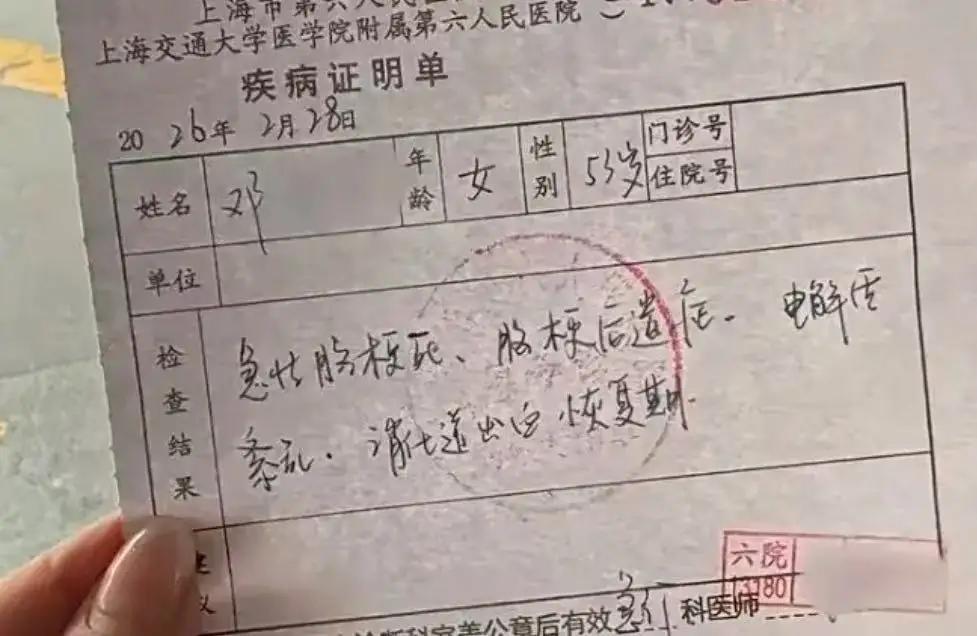 上海市第六人民医
上海交通大学医学院附属第六人民医院
疾病证明单
2026年 2月28日
姓名 邓 年龄 女 性别 53岁 门诊号
住院号
单位
检查结果
急性脑梗死、脑梗后遗症、电解质
紊乱、消化道出血 恢复期
六院
13180
科医师